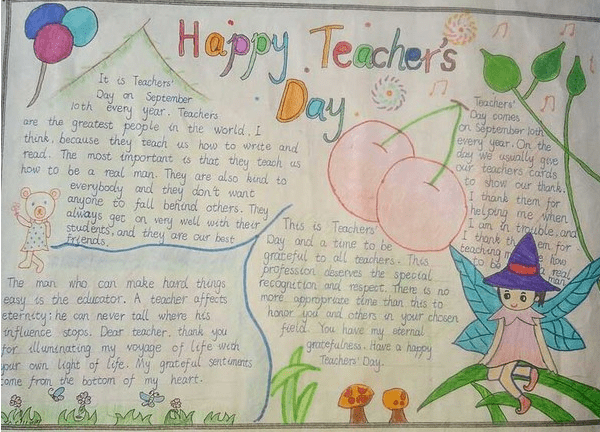 Happy Teacher's
Day
It is Teachers'
Day on September
10th every year. Teachers
are the greatest people in the world, I
think, because they teach us how to write and
read. The most important is that they teach us
how to be a real man. They are also kind to
everybody and they don't want
anyone to fall behind others. They
always get on very well with their
students, and they are our best
friends.
The man who can make hard things
easy is the educator. A teacher affects
eternity; he can never tall where his
influence stops. Dear teacher, thank you
for illuminating my voyage of life with
your own light of life. My grateful sentiments
come from the bottom of my heart.
This is Teachers'
Day and a time to be
grateful to all teachers. This
profession deserves the special
recognition and respect. There is no
more appropriate time than this to
honor you and others in your chosen
field. You have my eternal
gratefulness. Have a happy
Teachers' Day.
Teachers'
Day comes
on September 10th
every year. On the
day we usually give
our teachers cards
to show our thank.
I thank them for
helping me when
I am in trouble, and
I thank them for
teaching me how
to be a real
man.